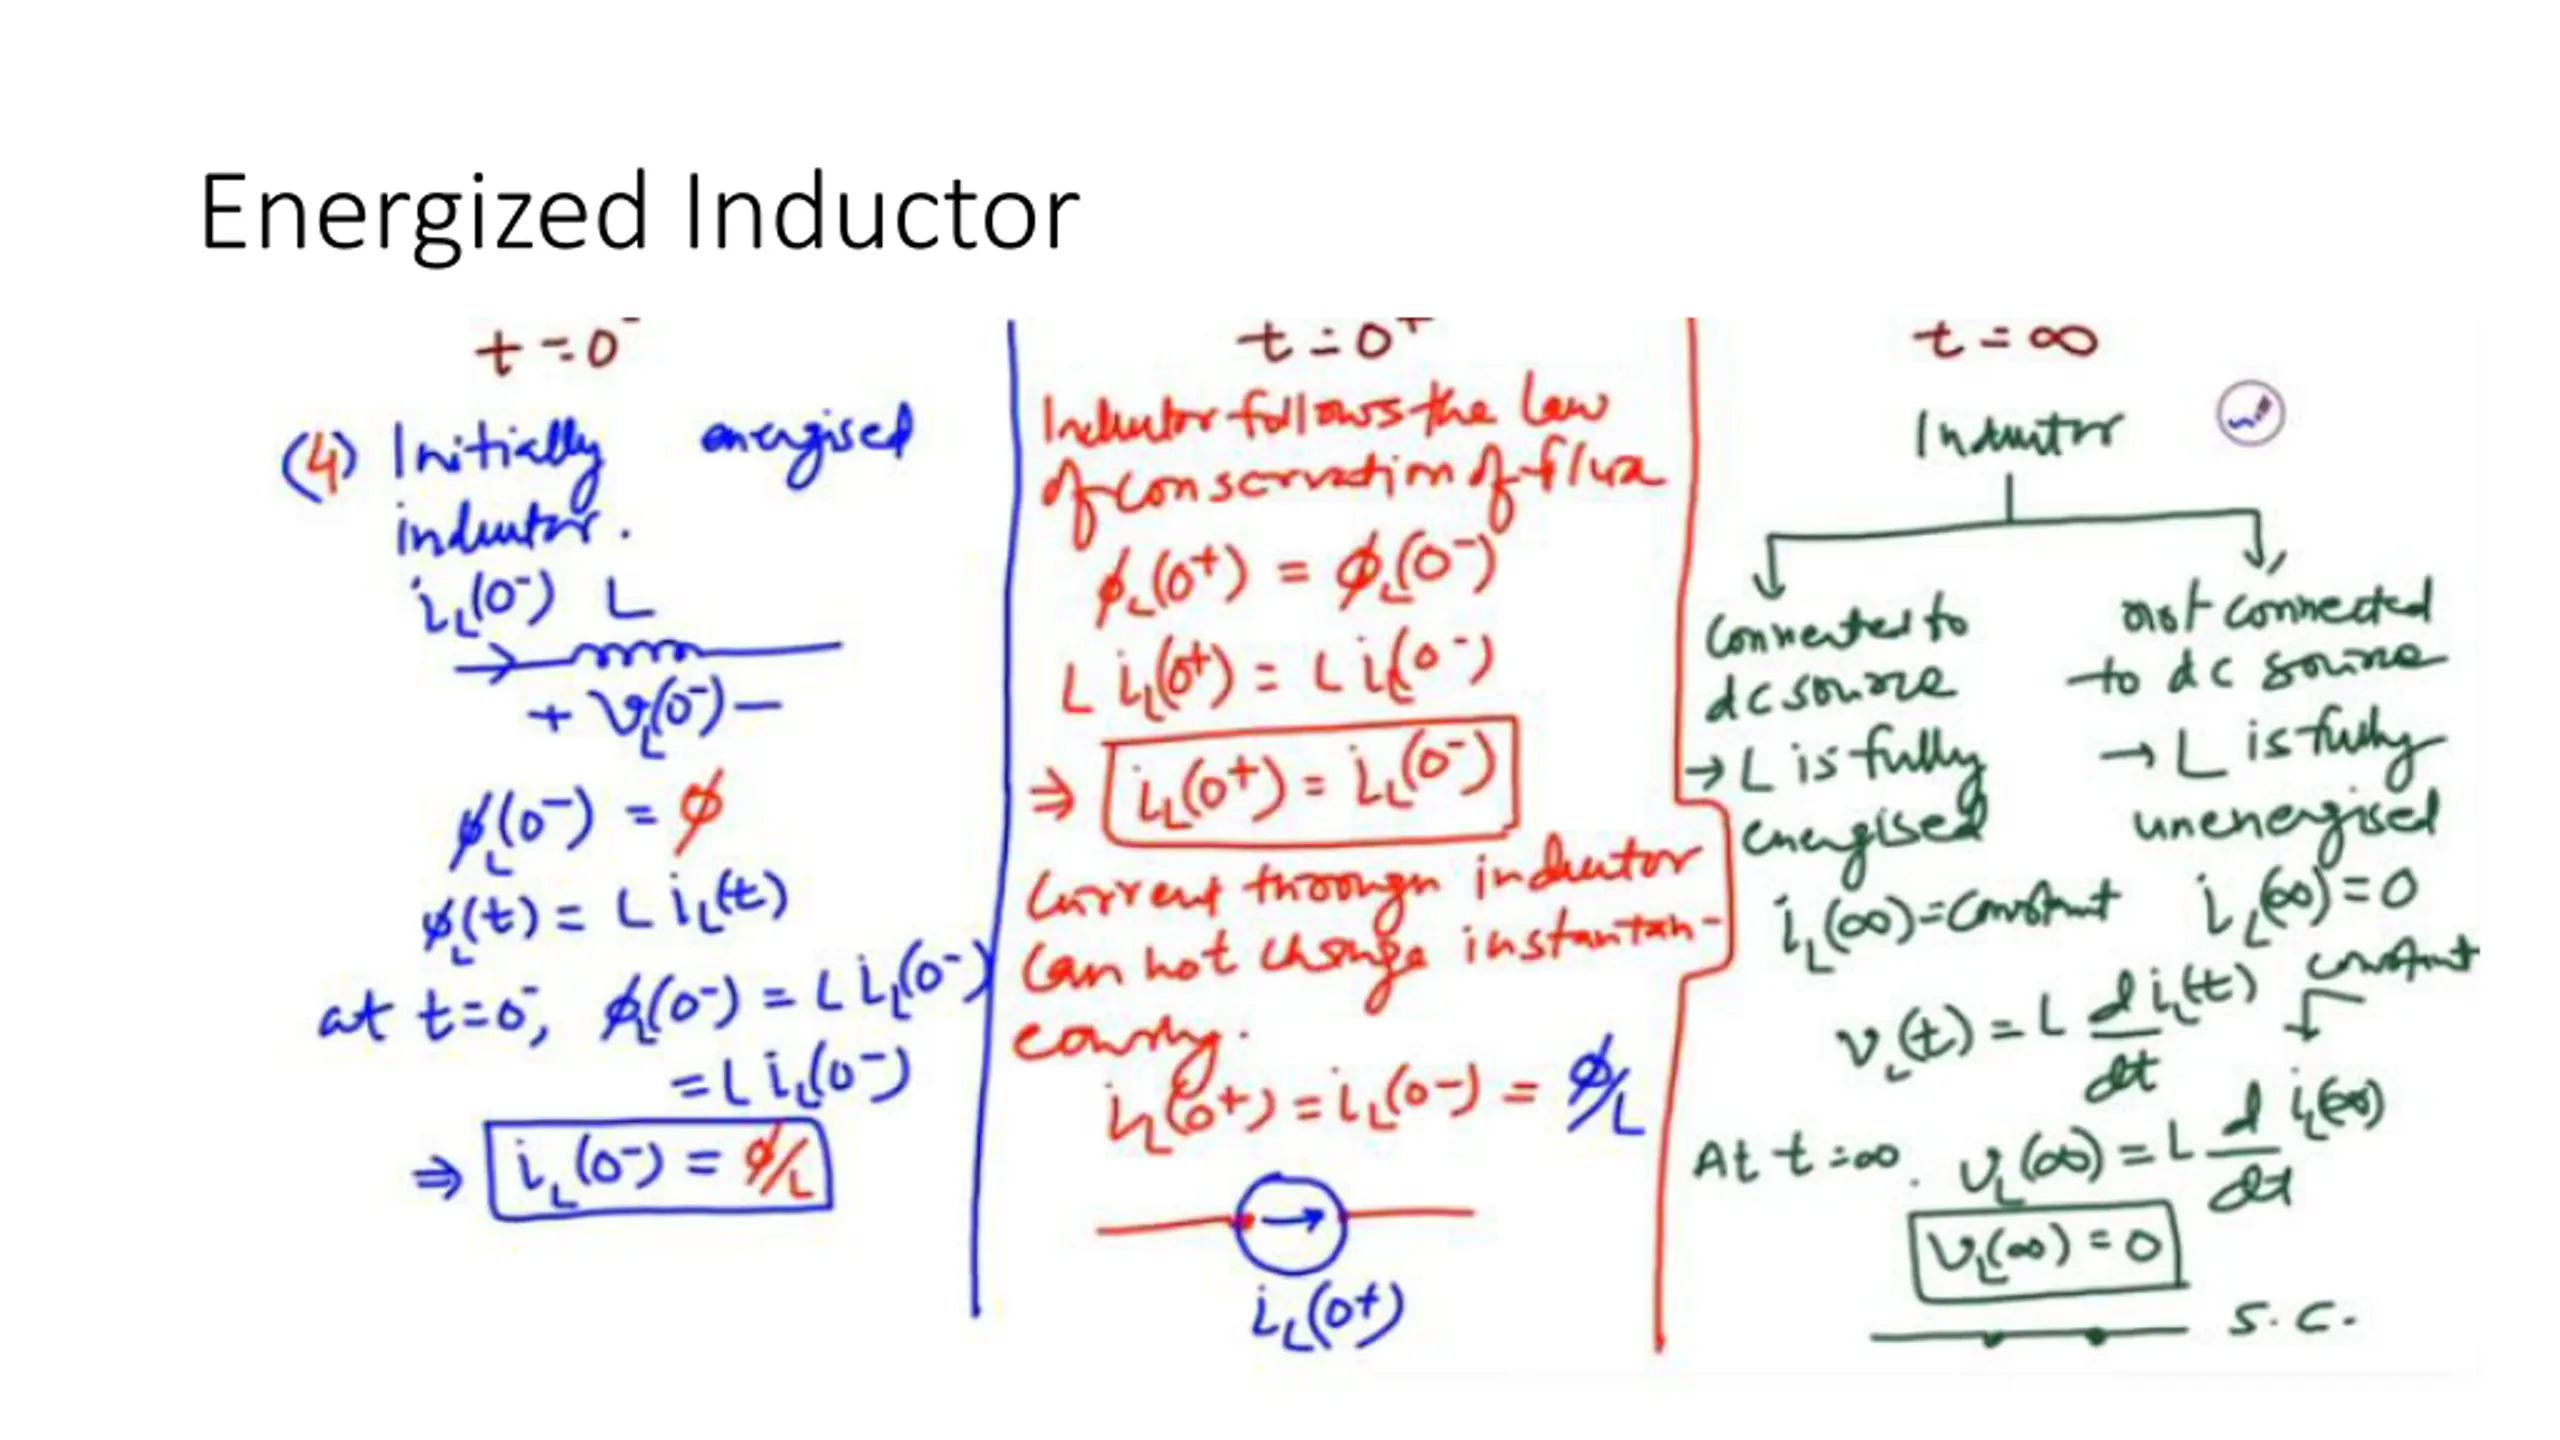 Energized Inductor
t=0⁻
(4) Initially energised
inductor.
i_L(0⁻) L
+ v_L(0⁻) −
ϕ_L(0⁻) = ϕ
ϕ_L(t) = L i_L(t)
at t=0⁻, ϕ_L(0⁻) = L i_L(0⁻)
= L i_L(0⁻)
⇒ i_L(0⁻) = ϕ/L
t=0⁺
Inductor follows the law
of conservation of flux
ϕ_L(0⁺) = ϕ_L(0⁻)
L i_L(0⁺) = L i_L(0⁻)
⇒ i_L(0⁺) = i_L(0⁻)
Current through inductor
can not change instantan-
eously.
i_L(0⁺) = i_L(0⁻) = ϕ/L
i_L(0⁺)
t=∞
Inductor
Connected to
dc source
→ L is fully
energised
i_L(∞)=constant
not connected
to dc source
→ L is fully
unenergised
i_L(∞)=0
constant
v_L(t) = L d i_L(t)/dt
At t=∞. v_L(∞) = L d/dt i_L(∞)
v_L(∞) = 0
S.C.